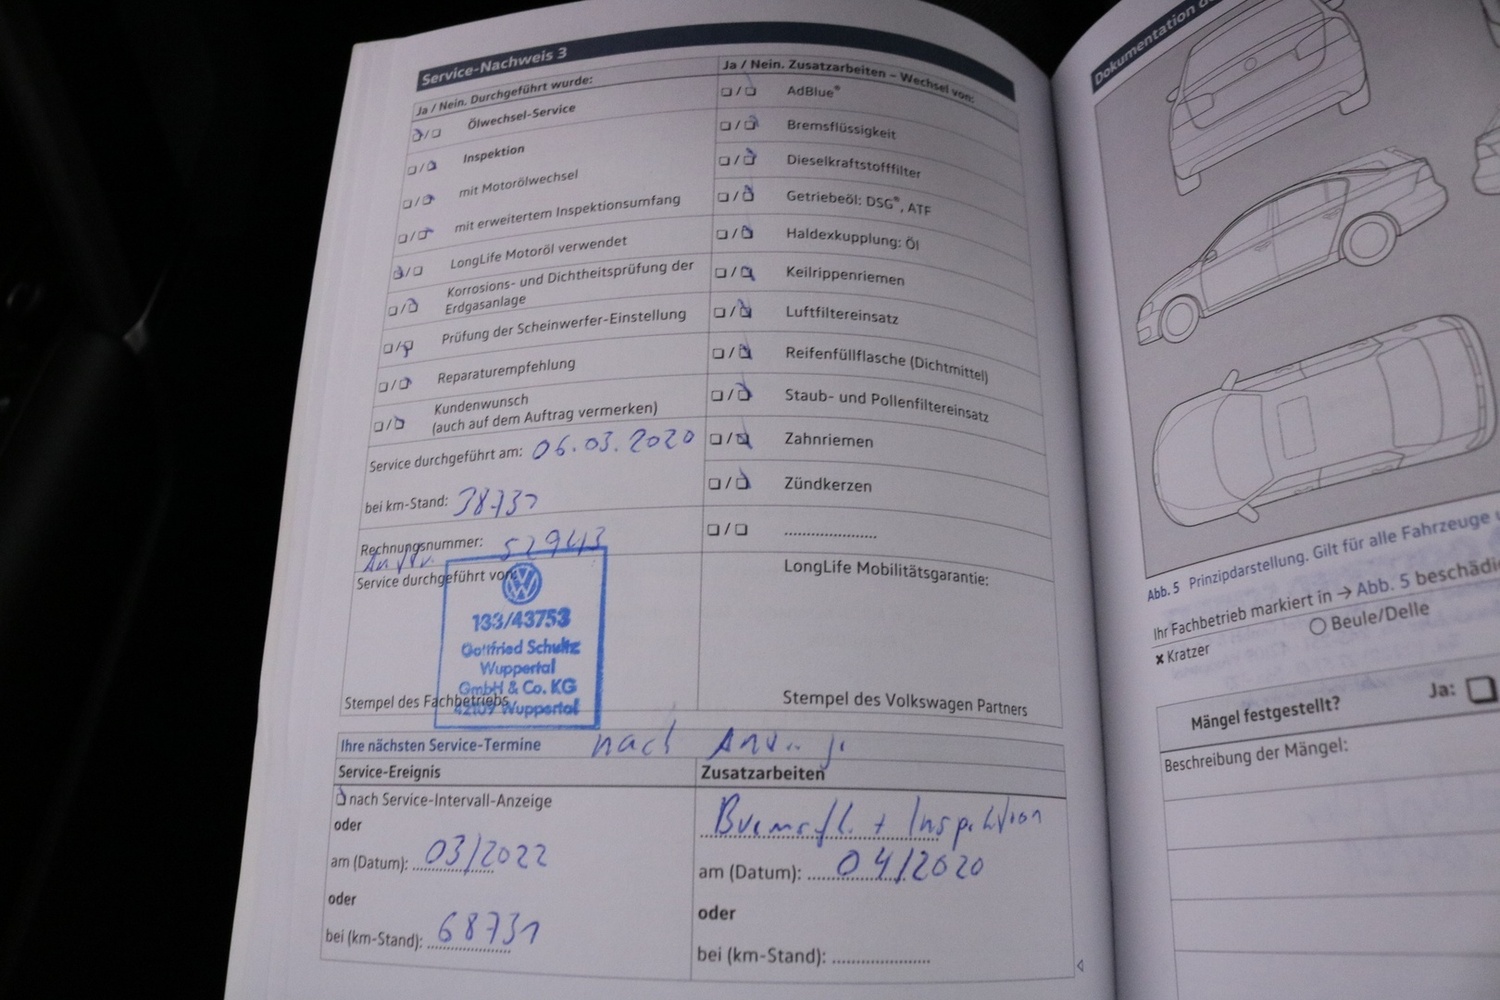 Service-Nachweis 3
Ja / Nein. Durchgeführt wurde:
Ölwechsel-Service
Inspektion
mit Motorölwechsel
mit erweitertem Inspektionsumfang
LongLife Motoröl verwendet
Korrosions- und Dichtheitsprüfung der
Erdgasanlage
Prüfung der Scheinwerfer-Einstellung
Reparaturempfehlung
Kundenwunsch
(auch auf dem Auftrag vermerken)
Service durchgeführt am: 06.03.2020
bei km-Stand: 38731
Rechnungsnummer: 52943
Service durchgeführt von:
133/43753
Gottfried Schultz
Wuppertal
GmbH & Co. KG
42109 Wuppertal
Stempel des Fachbetriebs
Ja / Nein. Zusatzarbeiten – Wechsel von:
AdBlue®
Bremsflüssigkeit
Dieselkraftstofffilter
Getriebeöl: DSG®, ATF
Haldexkupplung: Öl
Keilrippenriemen
Luftfiltereinsatz
Reifenfüllflasche (Dichtmittel)
Staub- und Pollenfiltereinsatz
Zahnriemen
Zündkerzen
LongLife Mobilitätsgarantie:
Stempel des Volkswagen Partners
Ihre nächsten Service-Termine nach
Service-Ereignis
nach Service-Intervall-Anzeige
oder
am (Datum): 03/2022
oder
bei (km-Stand): 68731
Zusatzarbeiten
Bremsfl. + Inspektion
am (Datum): 04/2020
oder
bei (km-Stand):
Dokumentation
Abb. 5 Prinzipdarstellung. Gilt für alle Fahrzeuge
Ihr Fachbetrieb markiert in → Abb. 5
Beule/Delle
x Kratzer
Mängel festgestellt? Ja:
Beschreibung der Mängel: